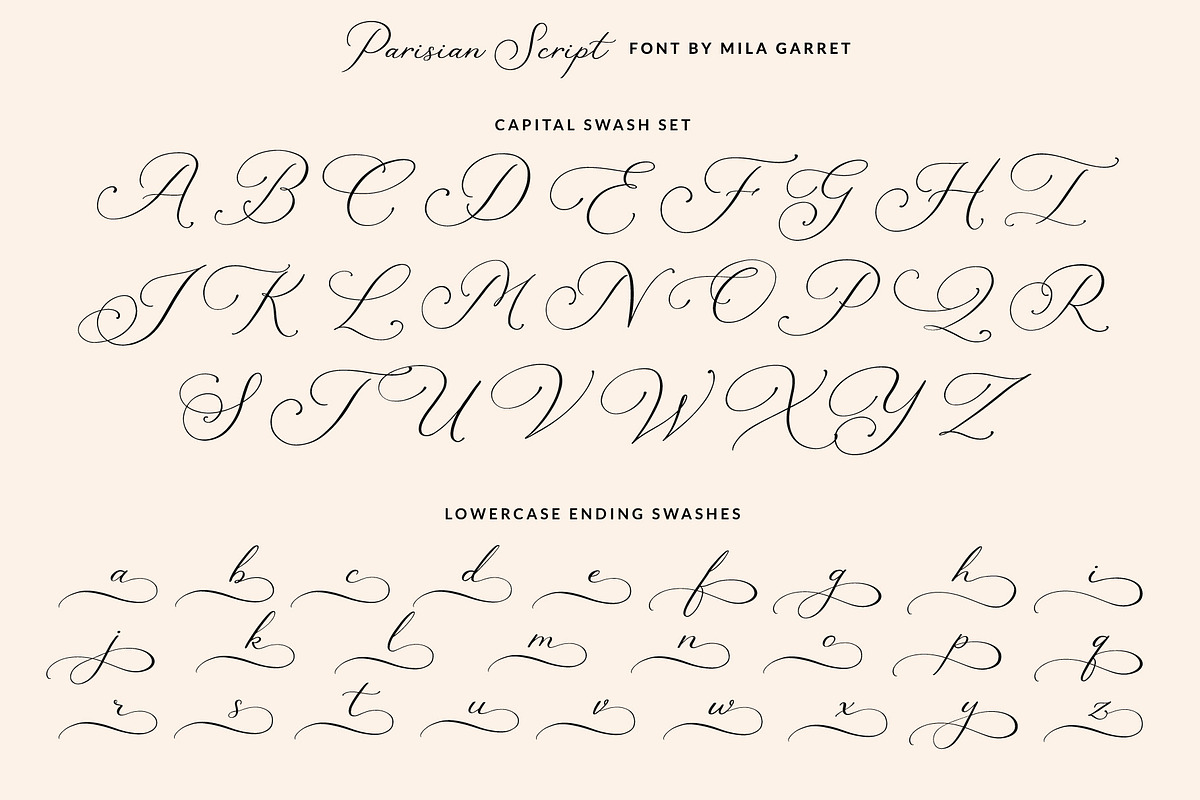 Parisian Script FONT BY MILA GARRET
CAPITAL SWASH SET
A B C D E F G H I
J K L M N O P Q R
S T U V W X Y Z
LOWERCASE ENDING SWASHES
a b c d e f g h i
j k l m n o p q
r s t u v w x y z